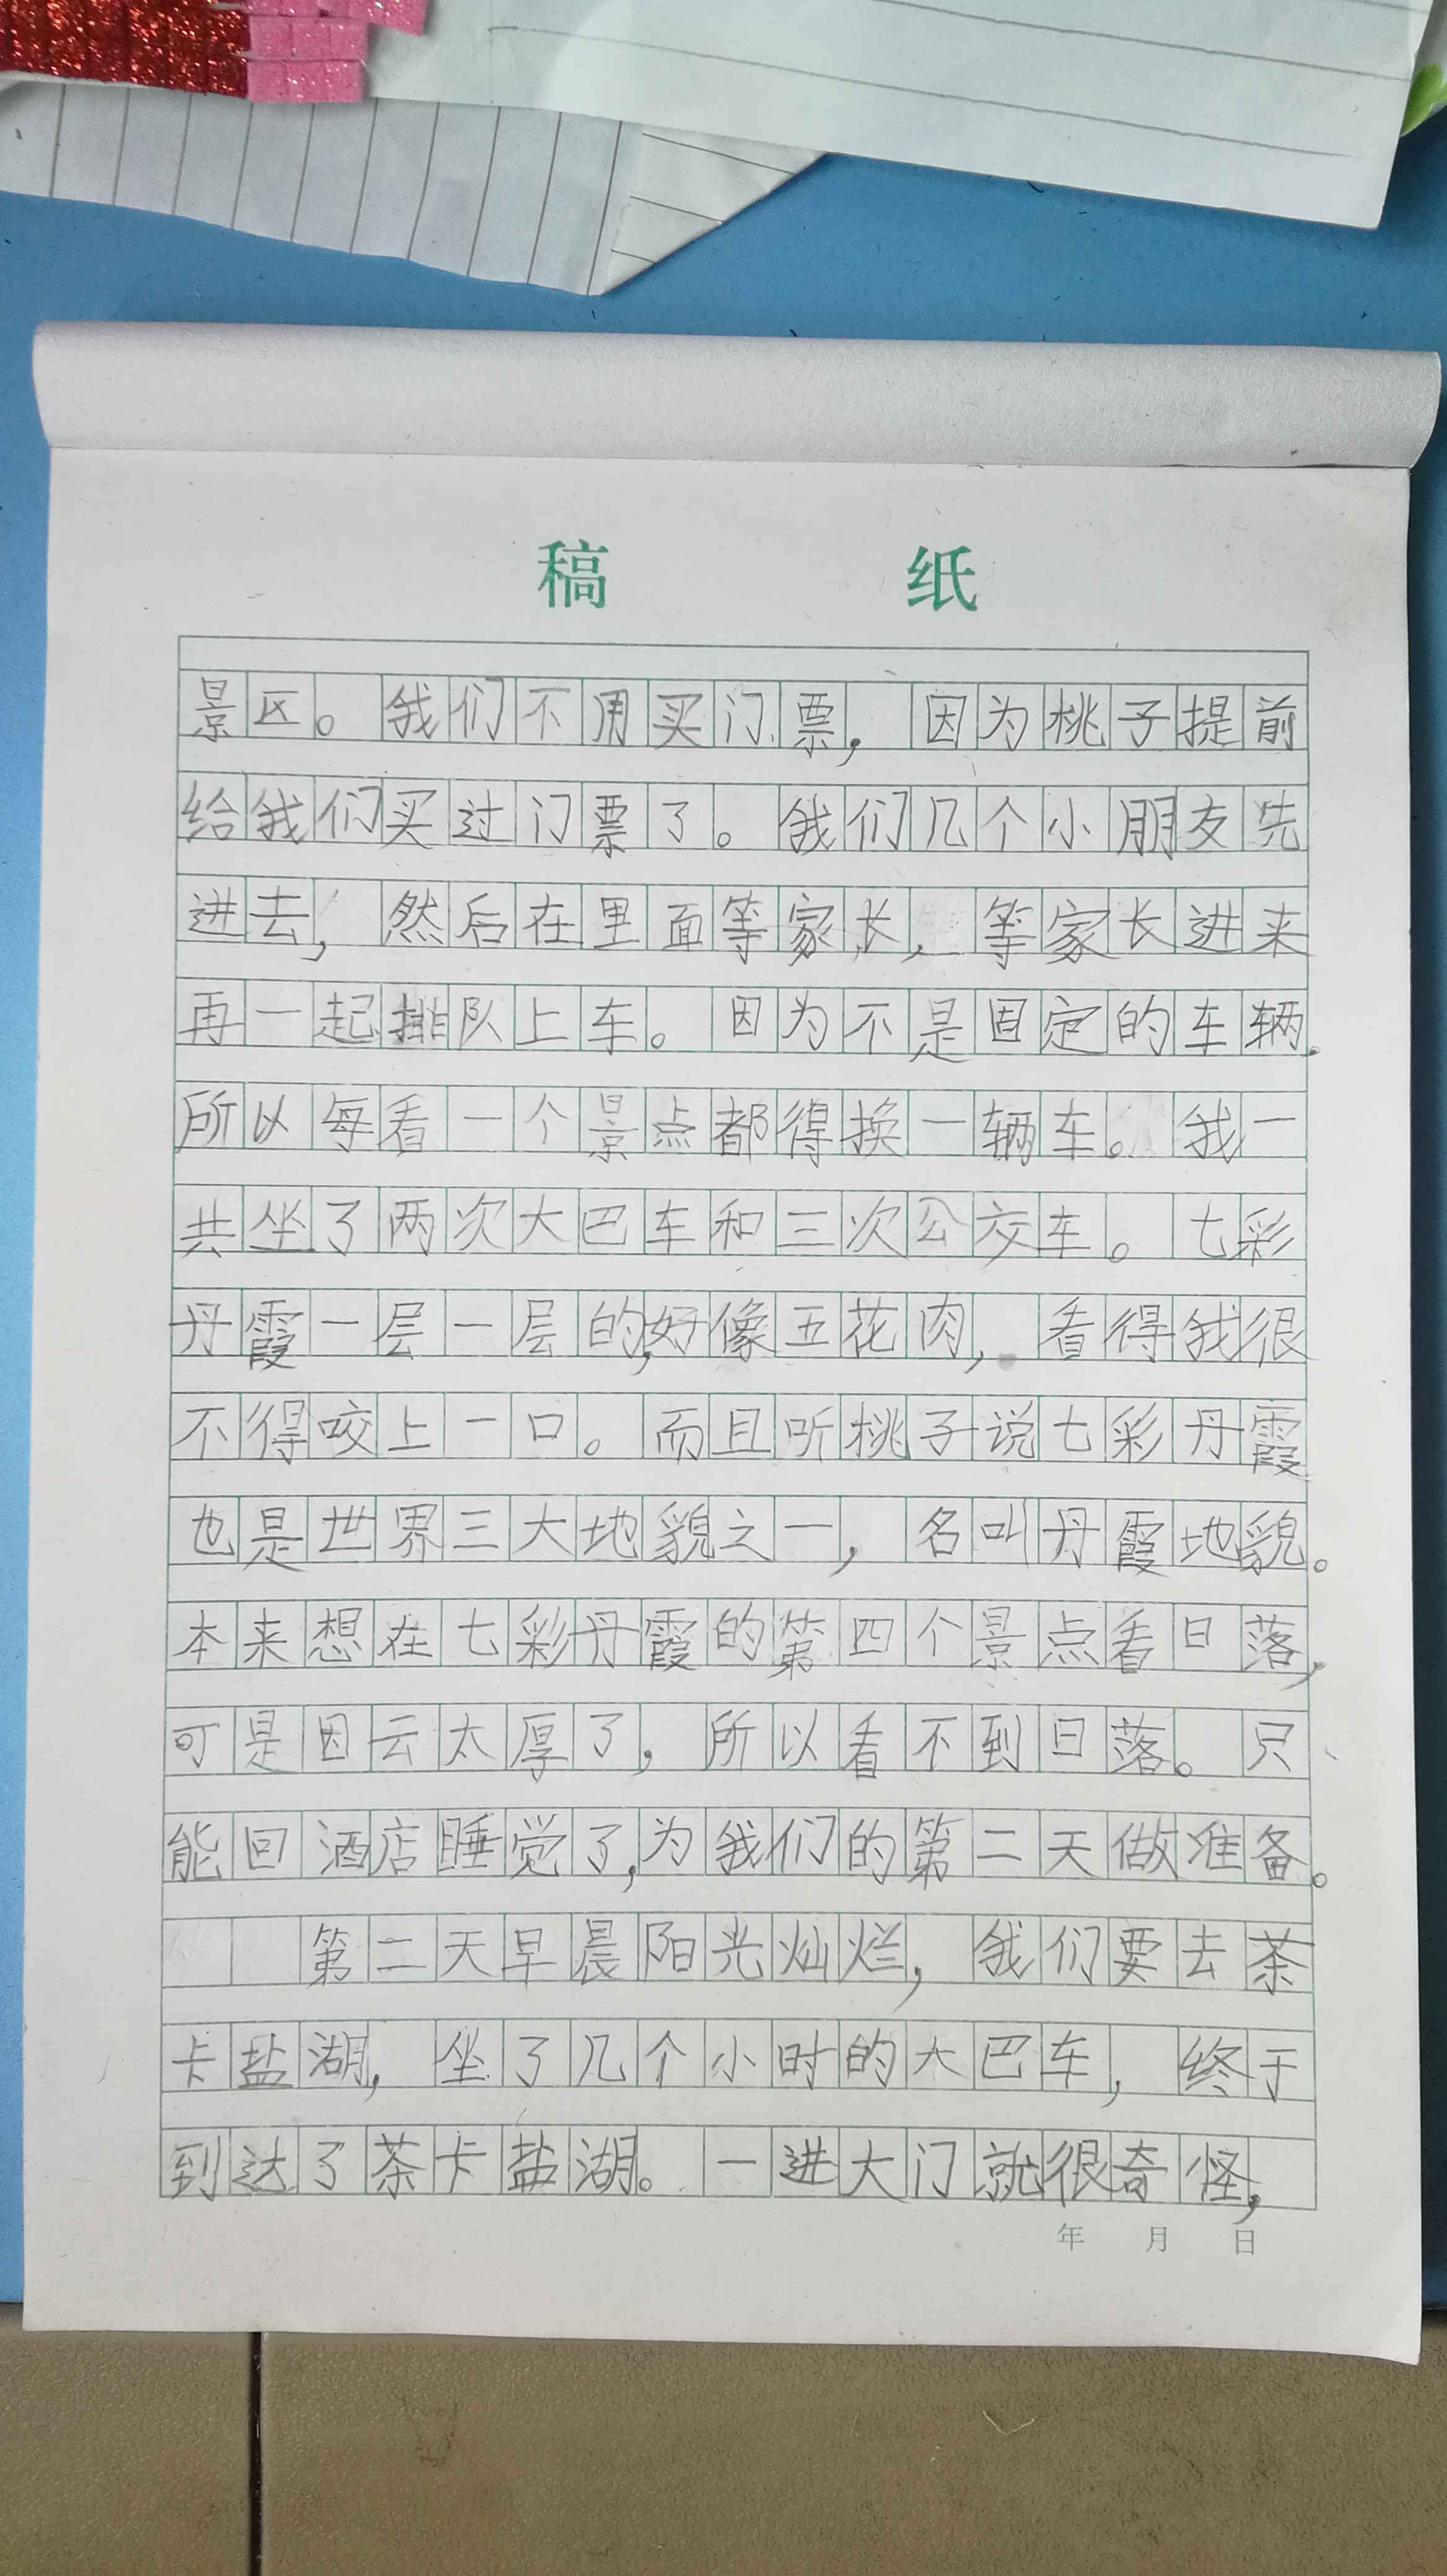 稿纸
景区。我们不用买门票,因为桃子提前
给我们买过门票了。我们几个小朋友先
进去,然后在里面等家长,等家长进来
再一起排队上车。因为不是固定的车辆.
所以每看一个景点都得换一辆车。我一
共坐了两次大巴车和三次公交车。七彩
丹霞一层一层的,好像五花肉,看得我很
不得咬上一口。而且听桃子说七彩丹霞
也是世界三大地貌之一,名叫丹霞地貌。
本来想在七彩丹霞的第四个景点看日落,
可是因云太厚了,所以看不到日落。只
能回酒店睡觉了,为我们的第二天做准备。
第二天早晨阳光灿烂,我们要去茶
卡盐湖,坐了几个小时的大巴车,终于
到达了茶卡盐湖。一进大门就很奇怪,
年 月 日